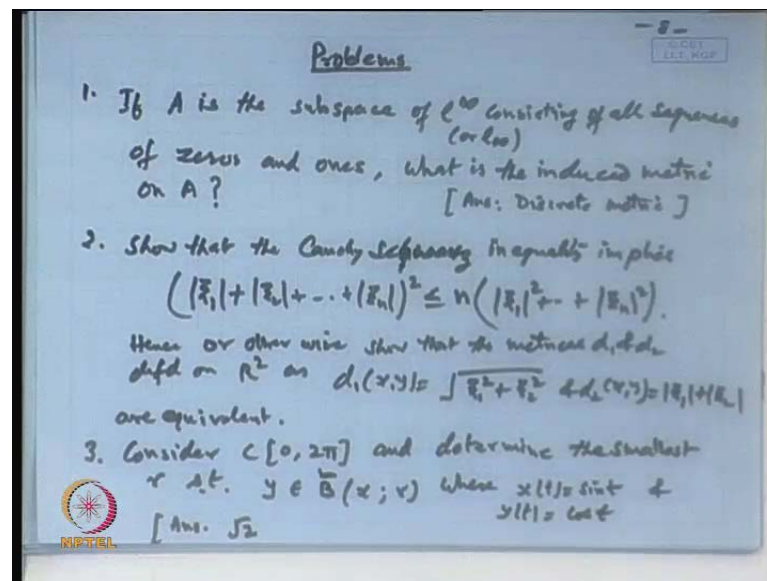 - 8 -
Problems
1. If A is the subspace of l^∞ consisting of all sequences
(or l∞)
of zeros and ones, what is the induced metric
on A?
[Ans: Discrete metric]
2. Show that the Cauchy Schwarz inequality implies
(|ξ₁| + |ξ₂| + ... + |ξₙ|)² ≤ n(|ξ₁|² + ... + |ξₙ|²).
Hence or otherwise show that the metrices d₁ & d₂
defd on R² as d₁(x,y) = √(ξ₁² + ξ₂²) & d₂(x,y) = |ξ₁| + |ξ₂|
are equivalent.
3. Consider C[0, 2π] and determine the smallest
r s.t. y ∈ B̃(x; r) where x(t) = sint &
y(t) = cost
[Ans. √2
NPTEL